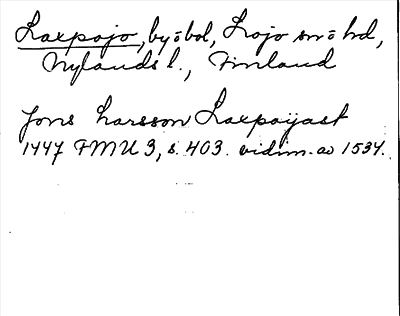 Laxpojo, by=bol, Lojo sn=hd,
Nylands l., Finland
Jons Larsson Laxpoijast
1447 FMU 3, s. 403. vidim. av 1534.